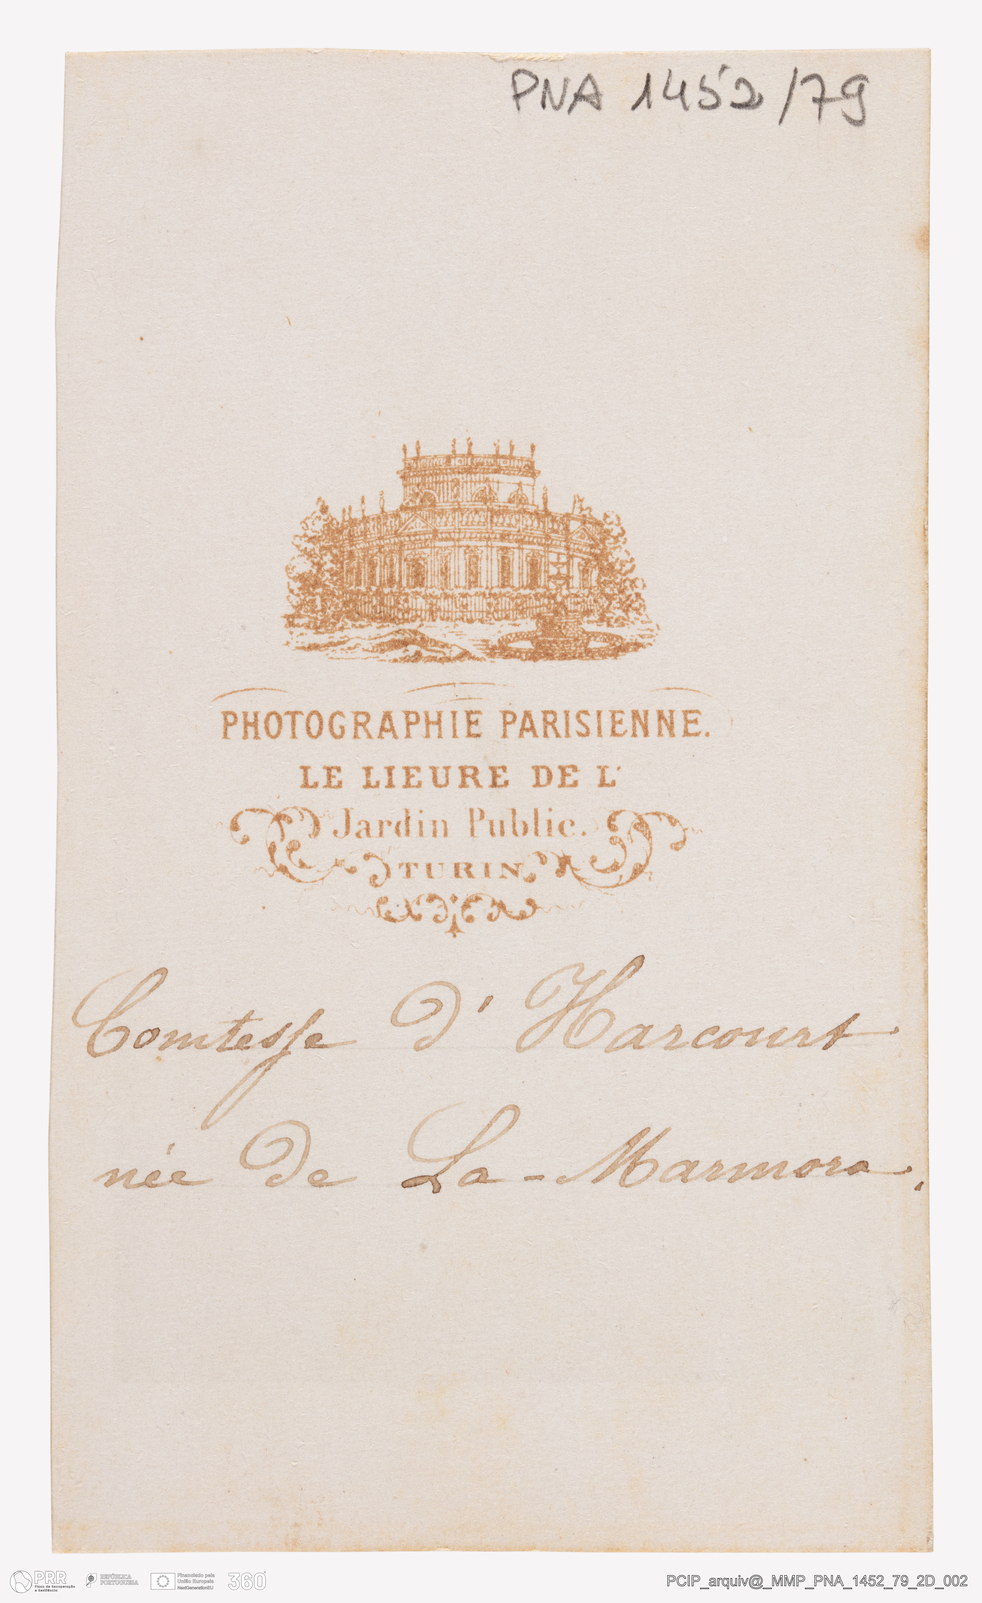 PNA 1452/79
PHOTOGRAPHIE PARISIENNE.
LE LIEURE DE L'
Jardin Public.
TURIN
Comtesse d'Harcourt
née de La-Marmora.
PRR
Plano de Recuperação e Resiliência
REPÚBLICA PORTUGUESA
Financiado pela União Europeia
NextGenerationEU
360
PCIP_arquiv@_MMP_PNA_1452_79_2D_002